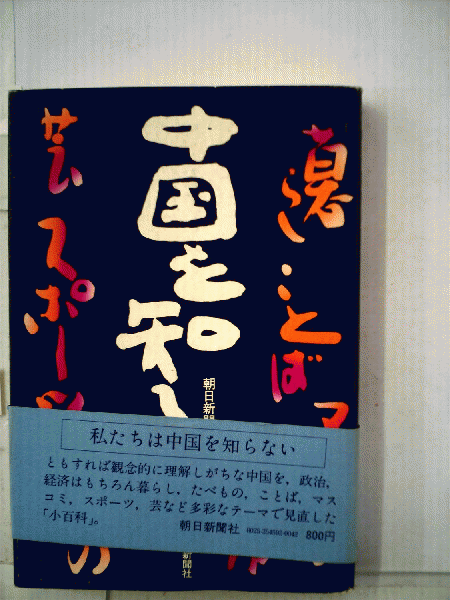 中国を知
暮らし ことば マ
芸 スポーツ
の
朝日新聞
新聞社
私たちは中国を知らない
ともすれば観念的に理解しがちな中国を，政治，
経済はもちろん暮らし，たべもの，ことば，マス
コミ，スポーツ，芸など多彩なテーマで見直した
「小百科」。
朝日新聞社 0025-254592-0042 800円